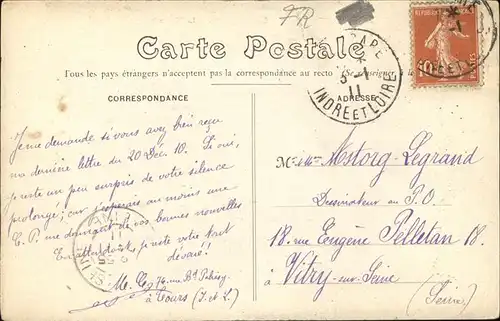 FR
Carte Postale
Tous les pays étrangers n'acceptent pas la correspondance au recto (Se renseigner à la
CORRESPONDANCE
ADRESSE
GARE
3-1
11
INDRE ET LOIRE
10
Je me demande si vous avez bien reçu
ma dernière lettre du 20 Déc 10. Si oui,
je reste un peu surpris de votre silence
prolongé; car j'espérais au moins une
C. P. me donnant de vos bonnes nouvelles
En attendant, je reste votre tout
dévoué!
M. 76, rue Bd
à Tours (I. et L.)
Mr Mestorg-Legrand
Dessinateur au P.O.
18, rue Eugène Pelletan 18.
à Vitry-sur-Seine
(Seine)